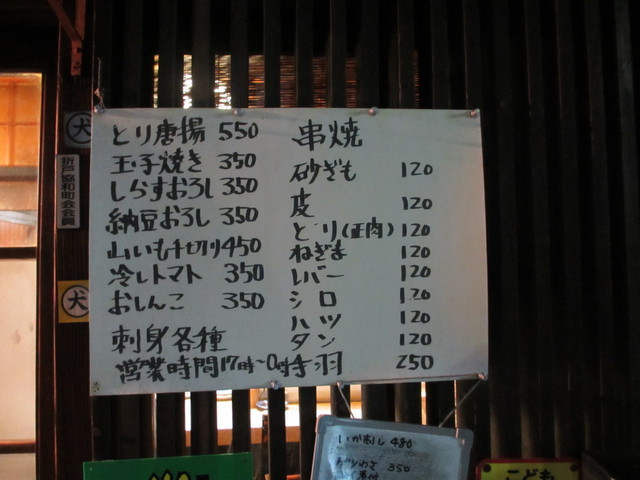 とり唐揚 550
玉子焼き 350
しらすおろし 350
納豆おろし 350
山いも千切り 450
冷しトマト 350
おしんこ 350
刺身各種
営業時間17時〜0時
串焼
砂ぎも 120
皮 120
とり(正肉) 120
ねぎま 120
レバー 120
シロ 120
ハツ 120
タン 120
手羽 250
犬
折戸協和町会会員
犬
480
350
こども